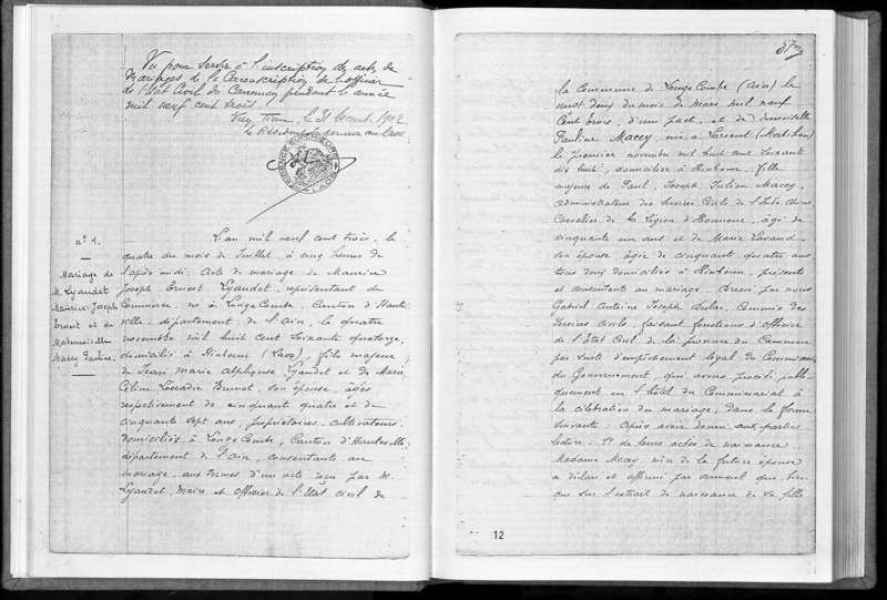 Vu pour servir à l'inscription des actes de
Mariages de la Circonscription de l'officier
de l'Etat Civil du Cammon pendant l'année
mil neuf cent trois
le 31 1902
le Résident
n° 1.
Mariage de
M. Lyaudet
Maurice Joseph
Ernest et de
Mademoiselle
Macey Pauline.
L'an mil neuf cent trois, le
quatre du mois de Juillet, à cinq heures de
l'après midi. Acte de mariage de Maurice
Joseph Ernest Lyaudet, représentant de
Commerce, né à Longe Combe, Canton d'Haute
ville, département de l'Ain, le quatre
novembre mil huit cent soixante quatorze,
domicilié à Hinboun (Laos), fils majeur
de Jean Marie Alphonse Lyaudet et de Marie
Céline Brunet, son épouse, âgés
respectivement de cinquante quatre et de
cinquante sept ans, propriétaires, cultivateurs
domiciliés à Longe Combe, Canton d'Hauteville
département de l'Ain, consentants au
mariage aux termes d'un acte reçu par M.
Lyaudet, Maire et officier de l'Etat civil de
la Commune de Longe Combe (Ain) le
du mois de mars mil neuf
cent trois, d'une part, et de demoiselle
Pauline Macey, née à Lorient (Morbihan)
le premier novembre mil huit cent soixante
dix huit, domiciliée à Hinboun, fille
majeure de Paul, Joseph, Julien Macey,
administrateur des Services Civils de l'Indo-Chine
Chevalier de la Légion d'Honneur, âgé de
cinquante un ans et de Marie
son épouse âgée de cinquante quatre ans
tous deux domiciliés à Hinboun, présents
et consentants au mariage. Dressé par nous
Gabriel Antoine Joseph, Commis des
Services Civils, faisant fonctions d'officier
de l'Etat Civil de la province du Cammon
par suite d'empêchement légal du Commissaire
du Gouvernement, qui avons procédé publi-
quement en l'hôtel du Commissariat à
la célébration du mariage, dans la forme
suivante: Après avoir donné aux parties
lecture: 1° de leurs actes de naissance
Madame Macey mère de la future épouse
a déclaré et affirmé par serment que bien
que sur l'extrait de naissance de sa fille
12